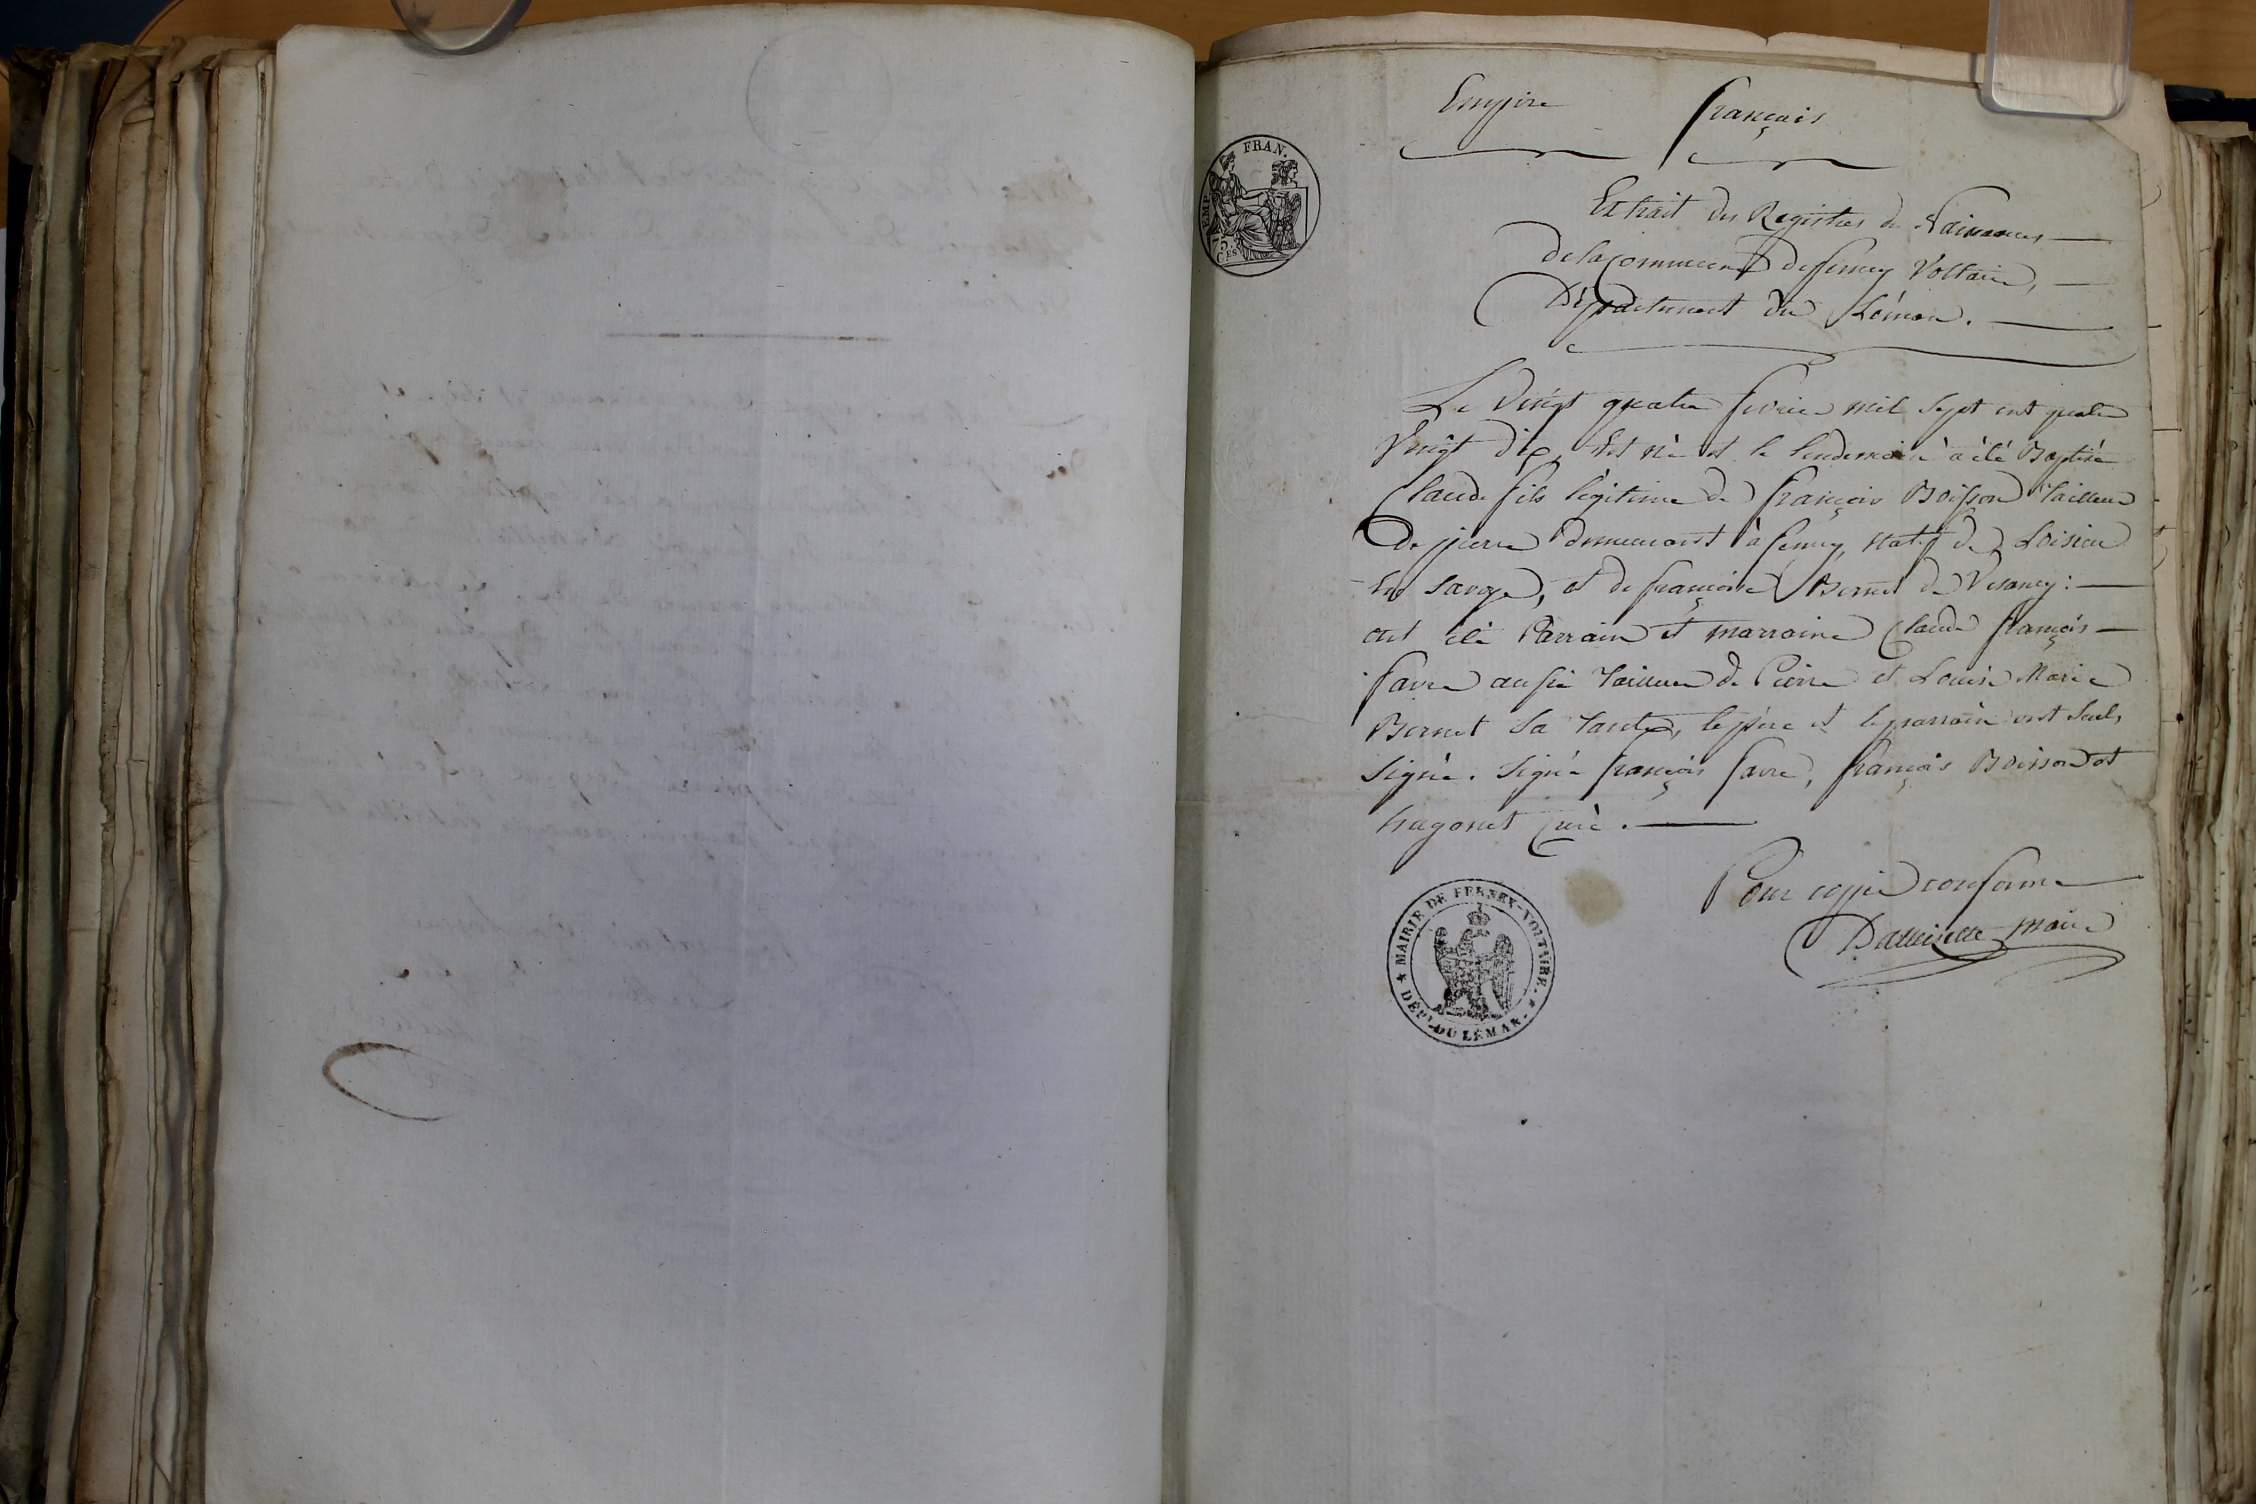 Empire français
EMP. FRAN.
75. Ces
Extrait des Registres de Naissances
de la Commune de ferney Voltaire,
Département du Léman.
Le Vingt quatre fevrier mil sept cent quatre
Vingt dix, Est né et le lendemain à èté Baptisé
Claude fils légitime de françois Boisson Tailleur
De pierre demeurant à ferney, natif de Loisieu
En Savoye, et de françoise Bernet de Vesancy :
ont été Parrain et marraine Claude françois
favre aussi Tailleur de Pierre et Louise Marie
Bernet Sa Tante, le père et le parrain ont Seuls
Signé. Signé françois favre, françois Boisson et
hugonet Curé.
Pour copie conforme
maire
MAIRIE DE FERNEX-VOLTAIRE.
DÉPt. DU LÉMAN.